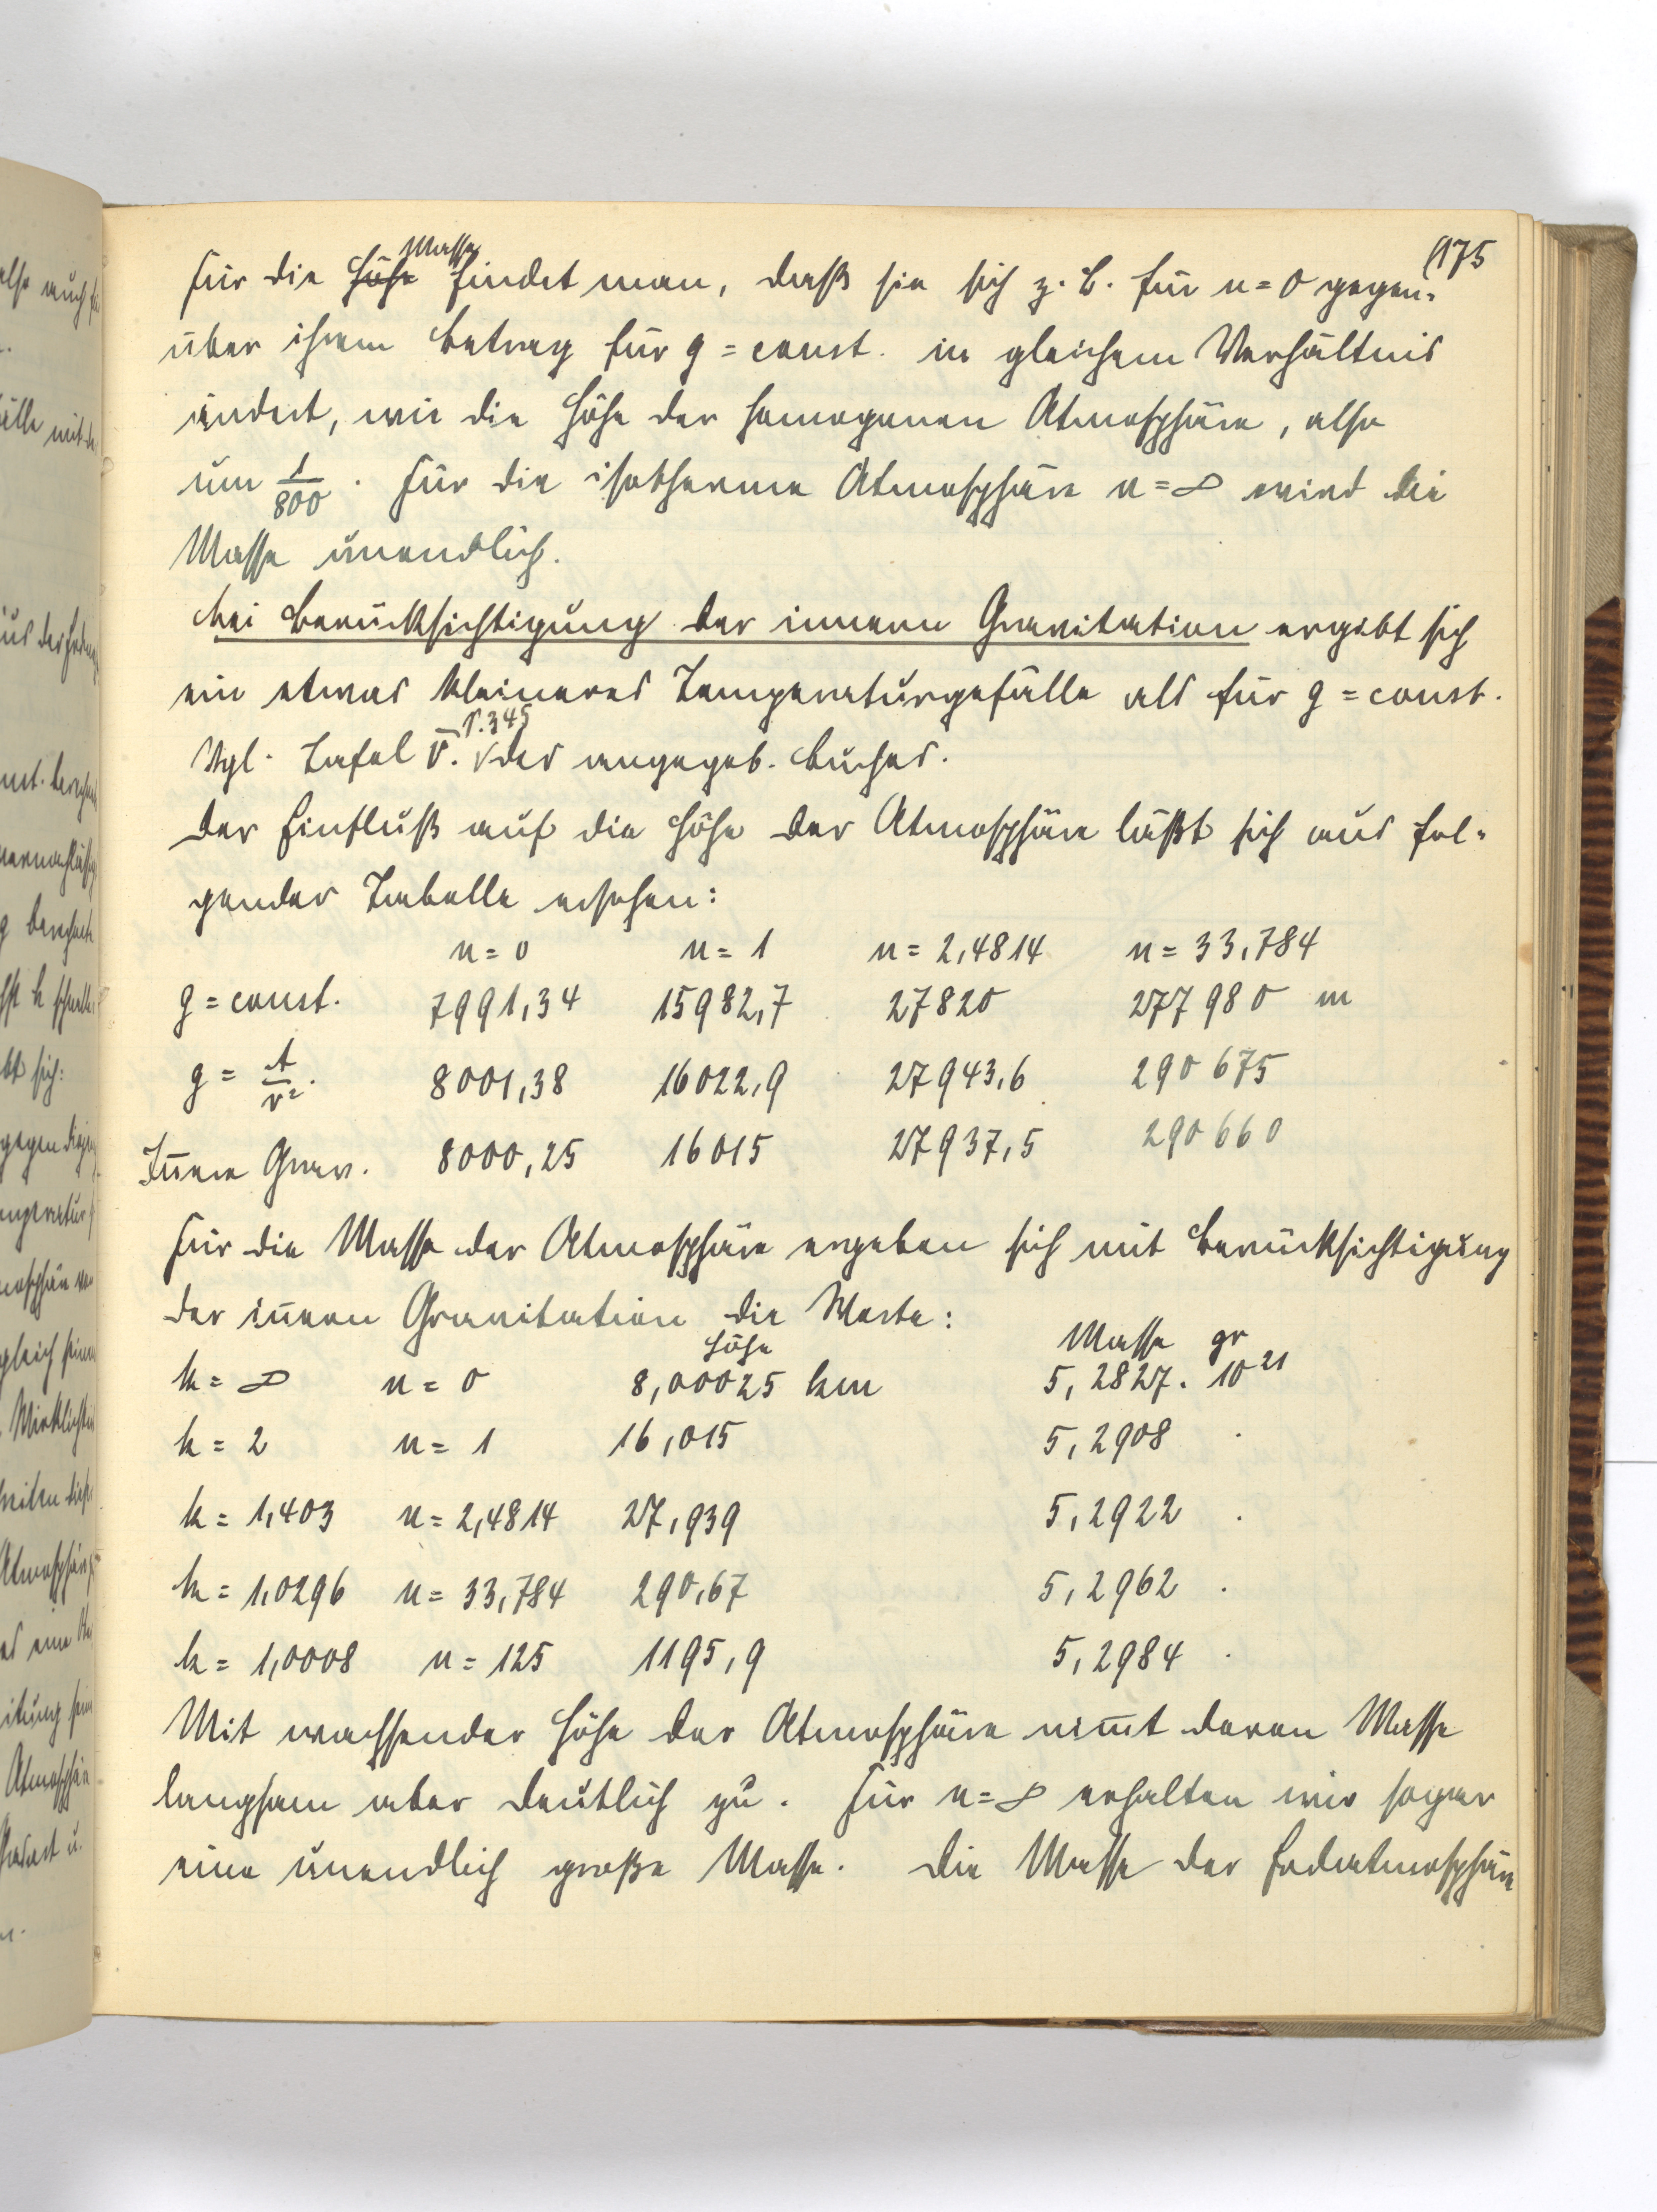 175
Masse
Für die Höhe findet man, daß sie sich z. B. für n = 0 gegen-
über ihrem Betrag für g = const. in gleichem Verhältnis
ändert, wie die Höhe der homogenen Atmosphäre, also
um 1/800. Für die isotherme Atmosphäre n = ∞ wird die
Masse unendlich.
Bei Berücksichtigung der innern Gravitation ergibt sich
ein etwas kleineres Temperaturgefälle als für g = const.
S. 345
Vgl. Tafel V. √ des angegeb. Buches.
Der Einfluß auf die Höhe der Atmosphäre läßt sich aus fol-
gender Tabelle ersehen:
n = 0 n = 1 n = 2,4814 n = 33,784
g = const. 7991,34 15982,7 27820 277980 m
g = A/r². 8001,38 16022,9 27943,6 290675
Iñere Grav. 8000,25 16015 27937,5 290660
Für die Masse der Atmosphäre ergeben sich mit Berücksichtigung
der iñern Gravitation die Werte:
Höhe Masse gr
k = ∞ n = 0 8,00025 km 5,2827 · 10²¹
k = 2 n = 1 16,015 5,2908 ·
k = 1,403 n = 2,4814 27,939 5,2922 ·
k = 1,0296 n = 33,784 290,67 5,2962 ·
k = 1,0008 n = 125 1195,9 5,2984 ·
Mit wachsender Höhe der Atmosphäre nim̅t deren Masse
langsam aber deutlich zu. Für n = ∞ erhalten wir sogar
eine unendlich große Masse. Die Masse der Erdatmosphäre